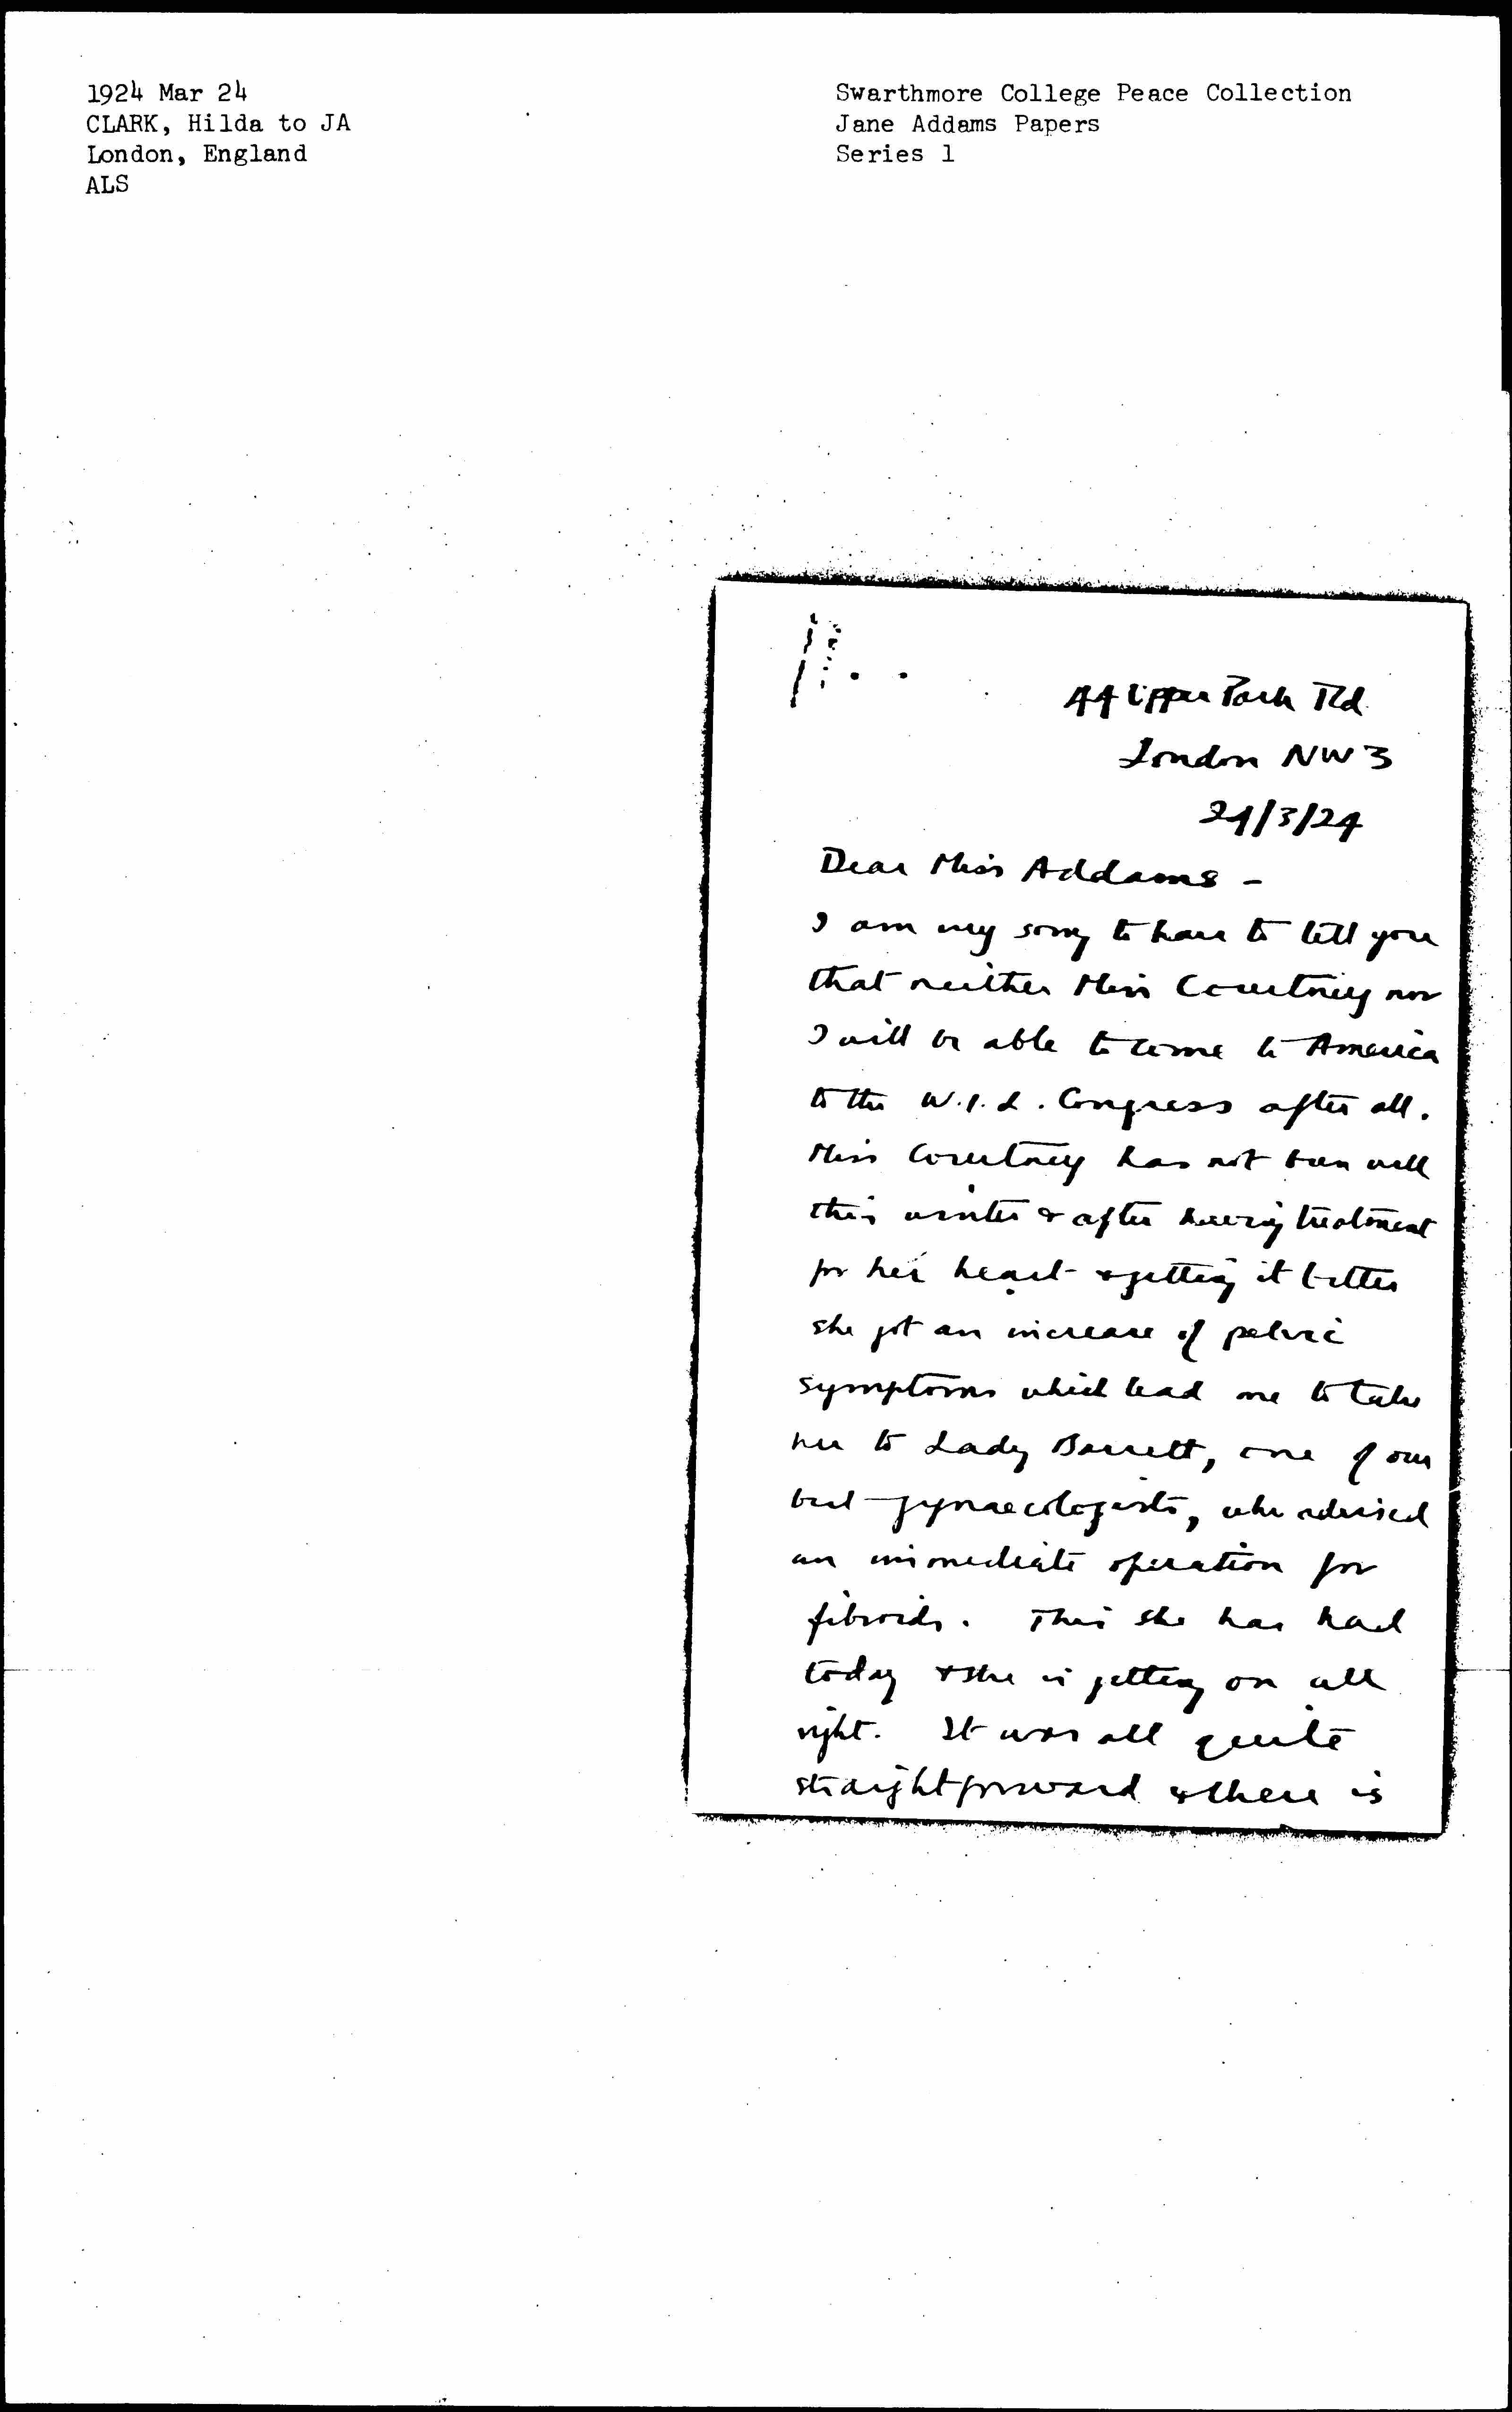 1924 Mar 24
CLARK, Hilda to JA
London, England
ALS
Swarthmore College Peace Collection
Jane Addams Papers
Series 1
44 Upper Park Rd
London NW3
24/3/24
Dear Miss Addams -
I am very sorry to have to tell you
that neither Miss Courtney nor
I will be able to come to America
to the W.I.L. Congress after all.
Miss Courtney has not been well
this winter & after having treatment
for her heart & getting it better
she got an increase of pelvic
symptoms which lead me to take
her to Lady Barrett, one of our
best gynaecologists, who advised
an immediate operation for
fibroids. This she has had
today & she is getting on all
right. It was all quite
straightforward & there is